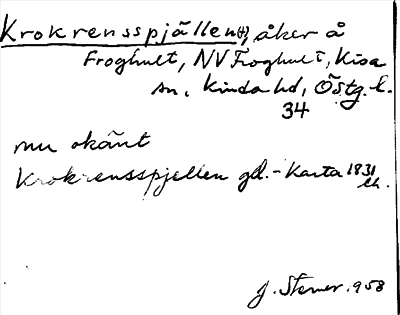 Krokrensspjällen(+), åker å
Froghult, NV Froghult, Kisa
sn, Kinda hd, Östg. l.
34
nu okänt
Krokrensspjellen gd. - Karta 1831
lh.
J. Sterner. 958